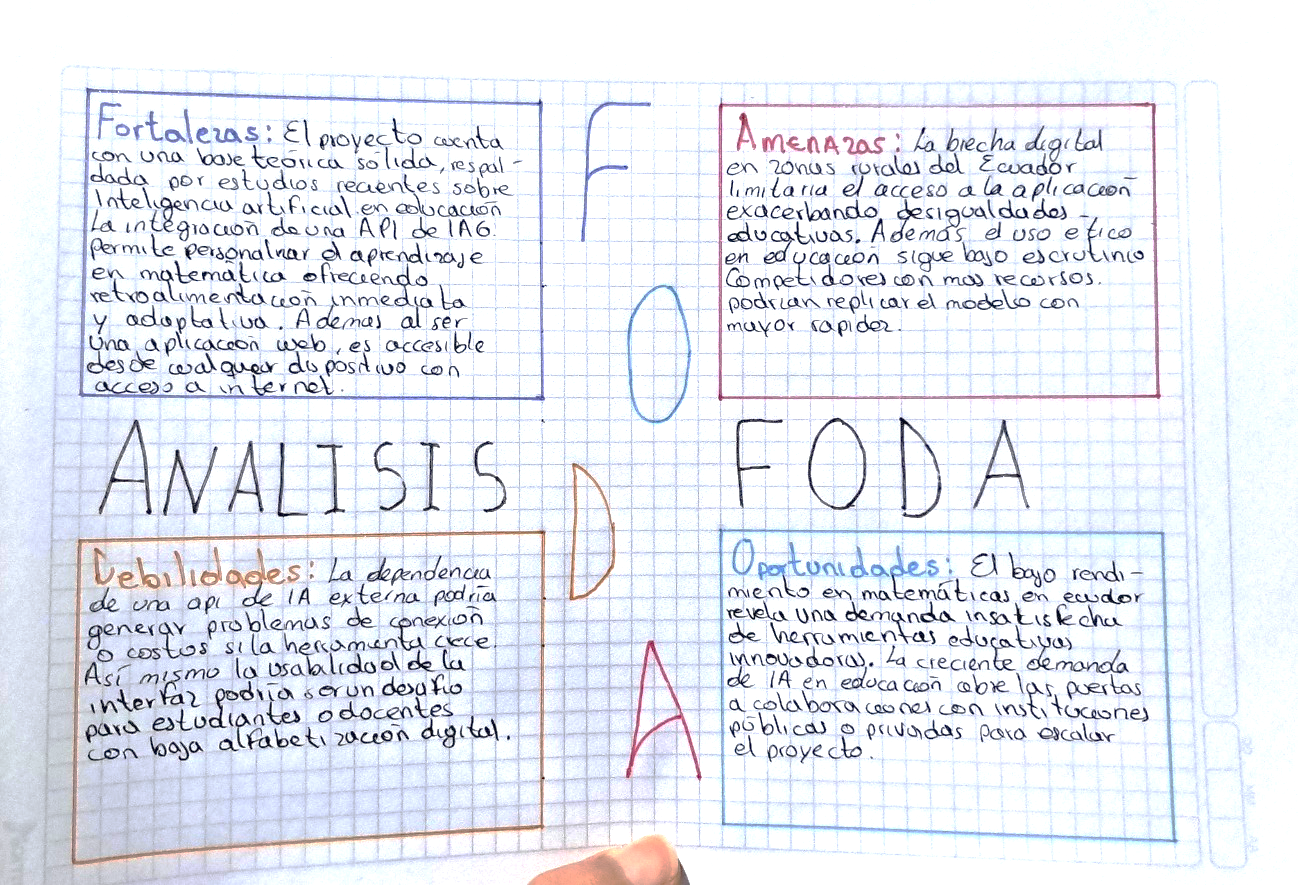 Fortalezas: El proyecto cuenta
con una base teorica solida, respal-
dada por estudios recientes sobre
Inteligencia artificial en educación
La integración de una API de IAG
permite personalizar el aprendizaje
en matemática ofreciendo
retroalimentación inmediata
y adaptativa. Ademas al ser
una aplicación web, es accesible
desde cualquier dispositivo con
acceso a internet.
F
O
D
A
Amenazas: La brecha digital
en zonas rurales del Ecuador
limitaria el acceso a la aplicación
exacerbando desigualdades
educativas. Además el uso etico
en educación sigue bajo escrutinio
Competidores con mas recursos.
podrian replicar el modelo con
mayor rapidez.
ANALISIS FODA
Debilidades: La dependencia
de una api de IA externa podría
generar problemas de conexión
o costos si la herramienta crece.
Así mismo la usabalidad de la
interfaz podría ser un desafio
para estudiantes o docentes
con baja alfabetización digital.
Oportunidades: El bajo rendi-
miento en matemáticas en ecudor
revela una demanda insatisfecha
de herramientas educativas
innovadoras. La creciente demanda
de IA en educación abre las puertas
a colaboraciones con instituciones
públicas o privadas para escalar
el proyecto.